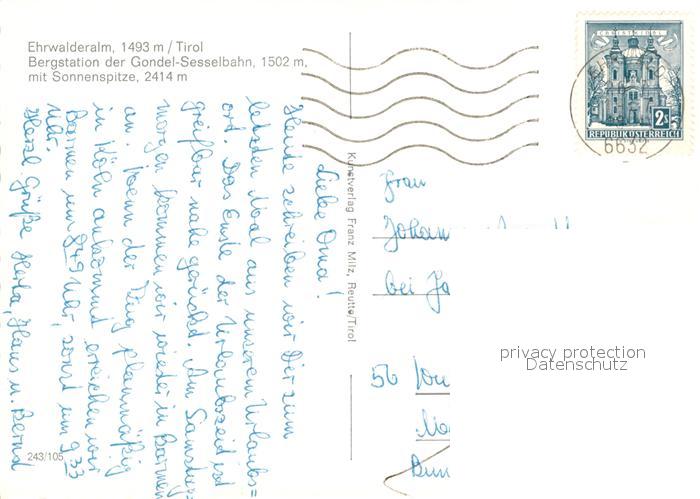 Ehrwalderalm, 1493 m / Tirol
Bergstation der Gondel-Sesselbahn, 1502 m,
mit Sonnenspitze, 2414 m
Liebe Oma!
Heute schreiben wir Dir zum
letzten Mal aus unserem Urlaubs=
ort. Das Ende der Urlaubszeit ist
greifbar nahe gerückt. Am Samstag
morgen kommen wir wieder in Barmen
an. Wenn der Zug planmäßig
in Köln ankommt erreichen wir
Barmen um 849 Uhr, sonst um 933
Uhr.
Herzl. Grüße Herta, Hans u. Bernd
243/105
Kunstverlag Franz Milz, Reutte/Tirol
CHRISTKINDL
2S
REPUBLIK ÖSTERREICH
6632
Frau
Johann
bei Ja
56
privacy protection
Datenschutz